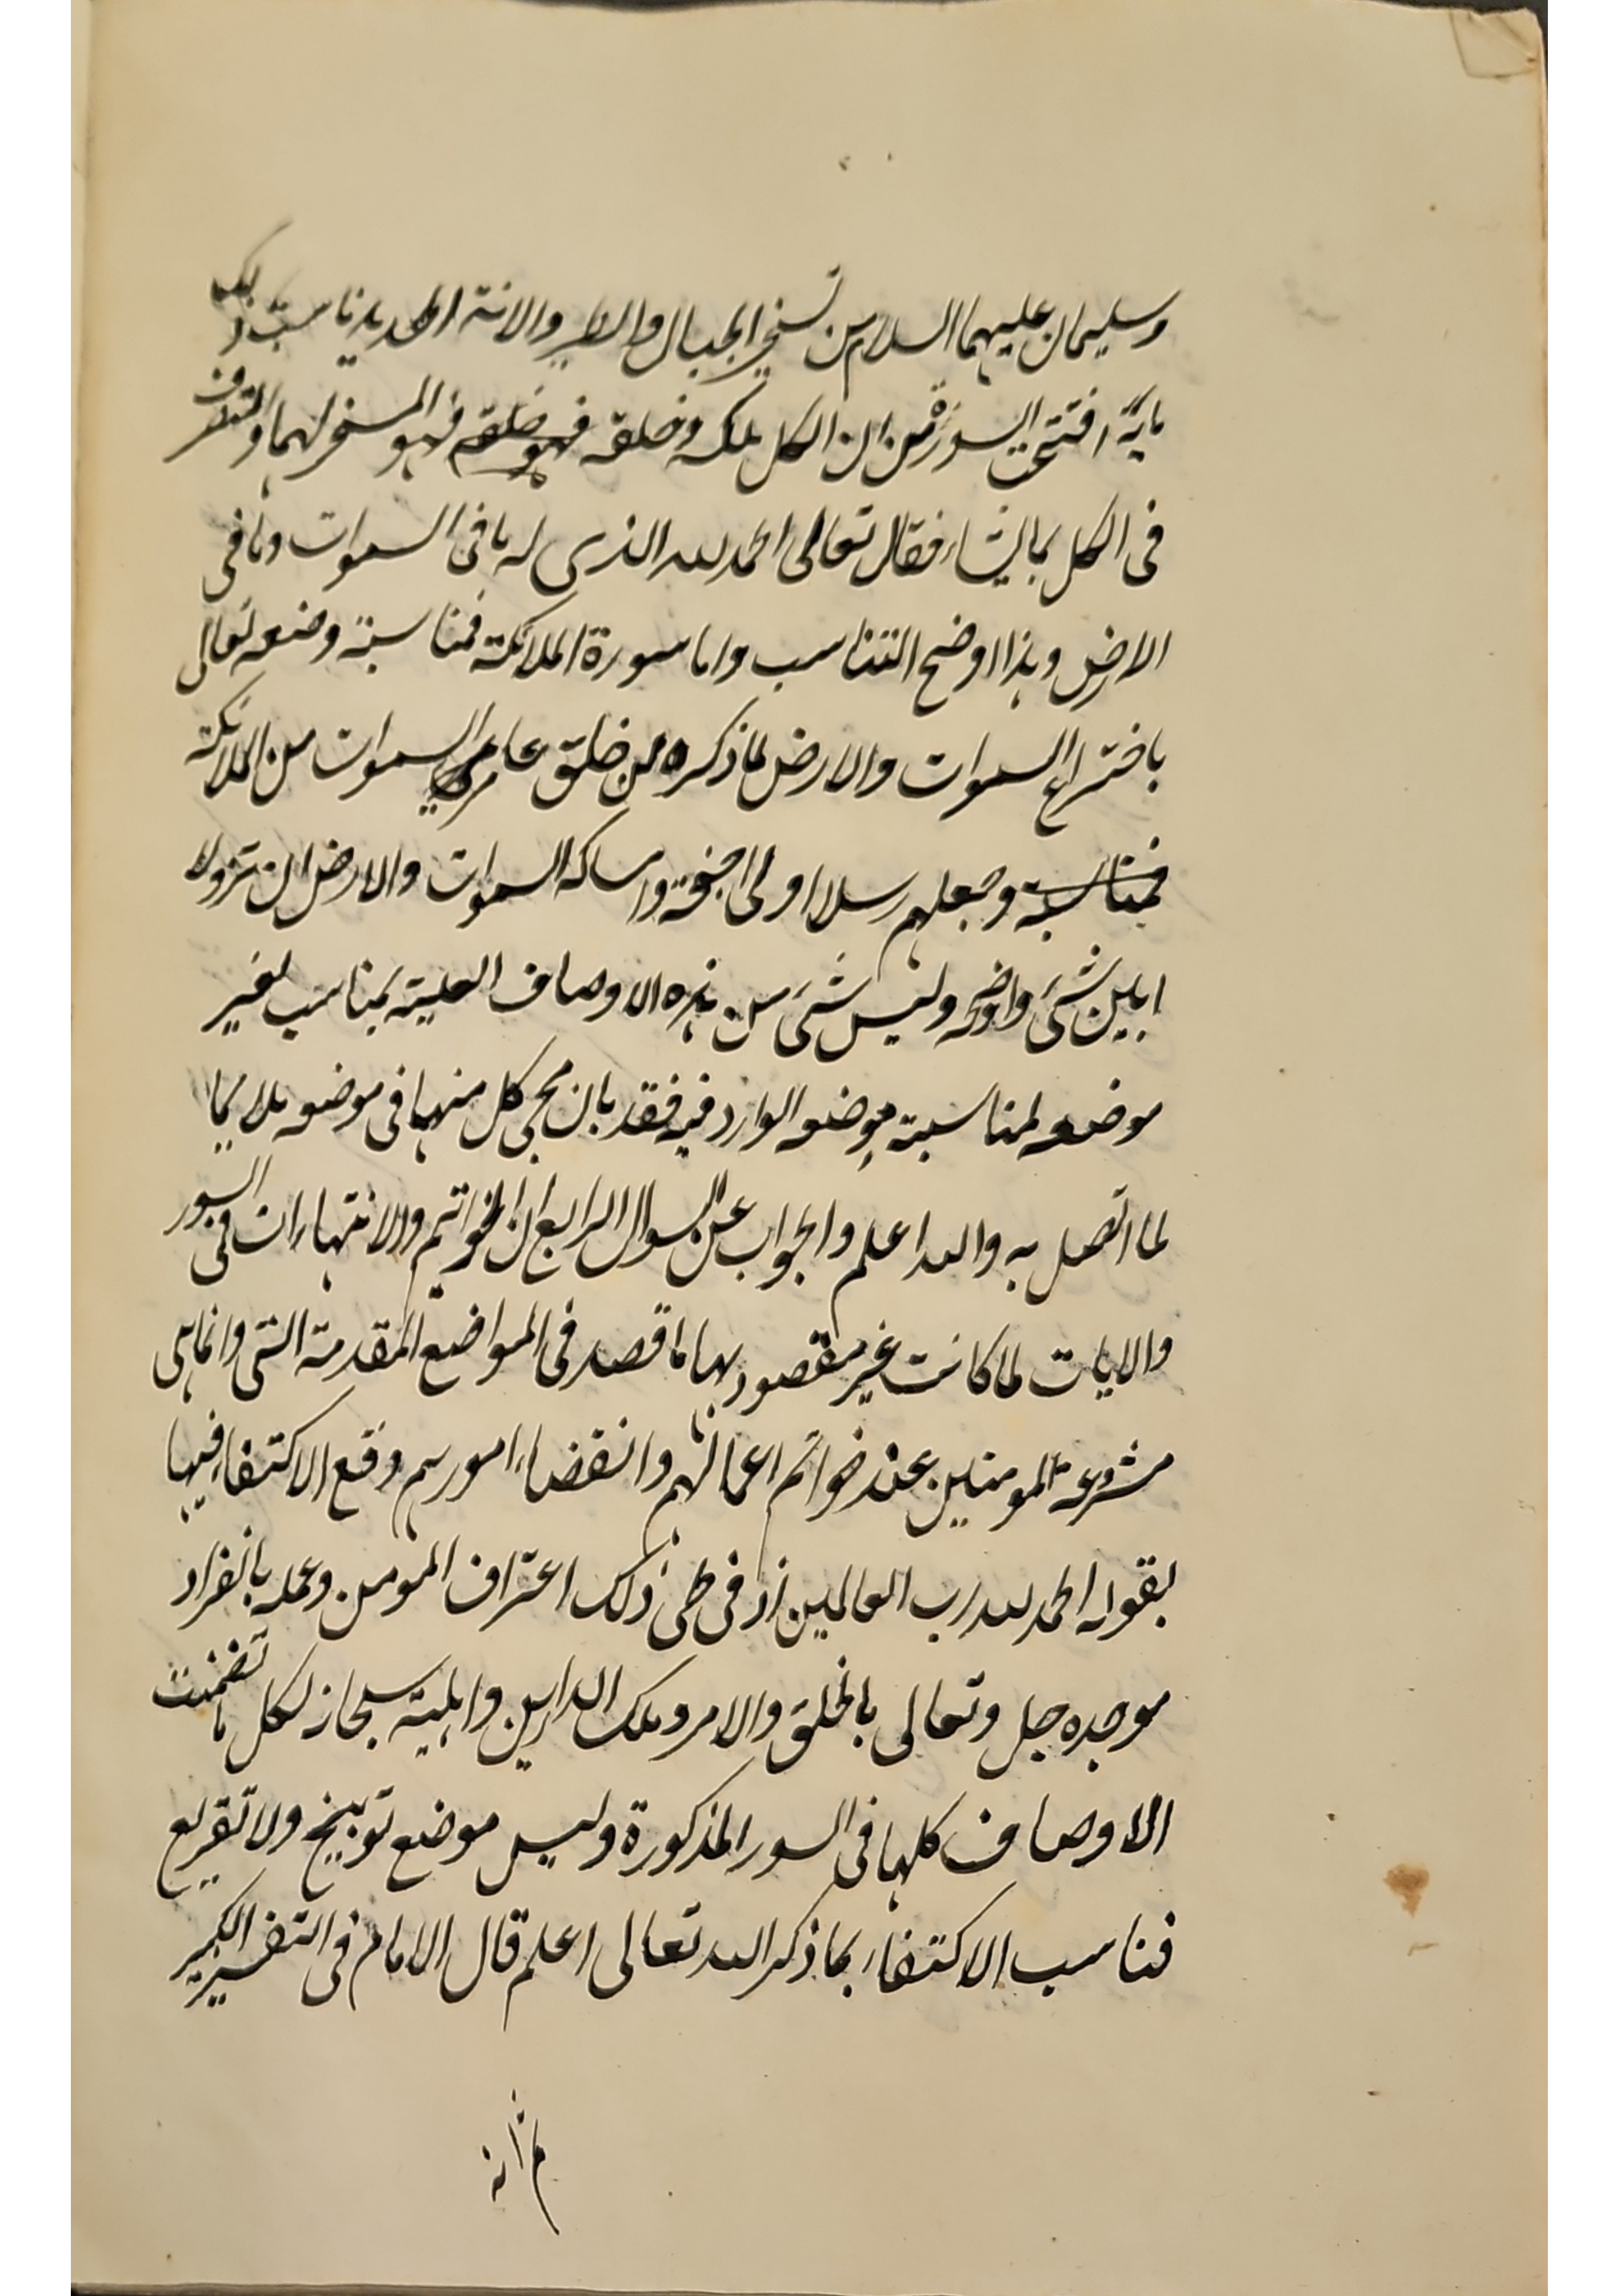 وسليمان عليهما السلام من تسخير الجبال والطير والانة الحديد ناسب ذلك
ما به افتتحت السورة من ان الكل ملكه وخلقه فهو خلقه فهو المسخر لهما والمتصرف
فى الكل بما يشاء فقال تعالى الحمد لله الذى له ما فى السموات وما فى
الارض وهذا اوضح التناسب واما سورة الملائكة فمناسبة وصفه تعالى
باختراع السموات والارض لما ذكره من خلق عامرى السموات من الملائكة
فمناسبة وجعلهم رسلا اولى اجنحة وامساكه السموات والارض ان تزولا
ابين شىء واوضحه وليس شىء من هذه الاوصاف العلية بمناسب لغير
موضعه لمناسبته موضعه الوارد فيه فقد بان مجى كل منها فى موضعه ملايما
لما اتصل به والله اعلم والجواب عن السوال الرابع ان الخواتيم والانتهاءات فى السور
والايات لما كانت غير مقصود بها ما قصد فى المواضع المقدمة التى وانما هى
مشروعة للمومنين عند خواتم اعمالهم وانقضاء امورهم وقع الاكتفاء فيها
بقوله الحمد لله رب العالمين اذ فى طى ذلك اعتراف المومن وعلمه بانفراد
موجده جل وتعالى بالخلق والامر وملك الدارين واهليته سبحانه لكل ما تضمنت
الاوصاف كلها فى السور المذكورة وليس موضع توبيخ ولا تقريع
فناسب الاكتفاء بما ذكر الله تعالى اعلم قال الامام فى التفسير الكبير
ثم انه